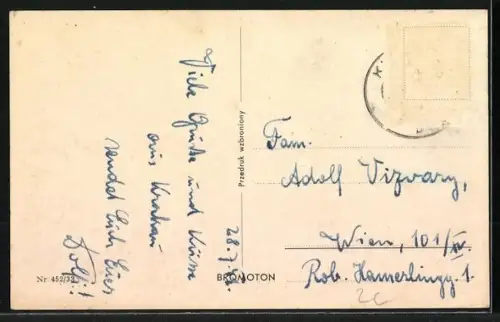 28.7.
Viele Grüße und Küsse
aus Krakau
sendet Euch Euer
Dolfi!
Przedruk wzbroniony
Fam.
Adolf Vizvary,
Wien, 101/IV.
Rob. Hamerlingg. 1.
Nr 452/33
BROMOTON
2C